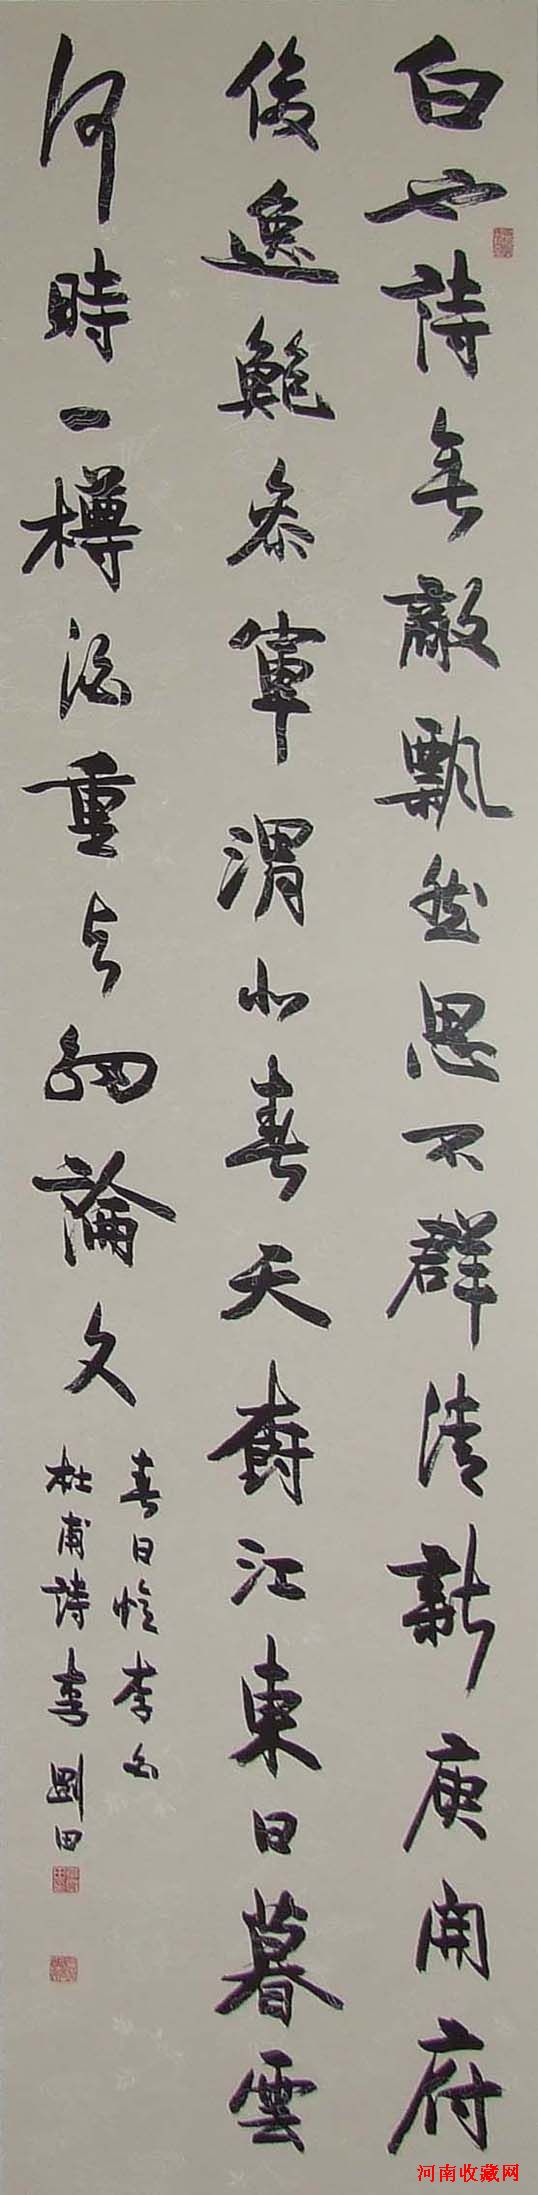 白也詩無敵飄然思不群清新庾開府
俊逸鮑參軍渭北春天樹江東日暮雲
何時一樽酒重與細論文
春日憶李白
杜甫詩 李剛田
河南收藏网